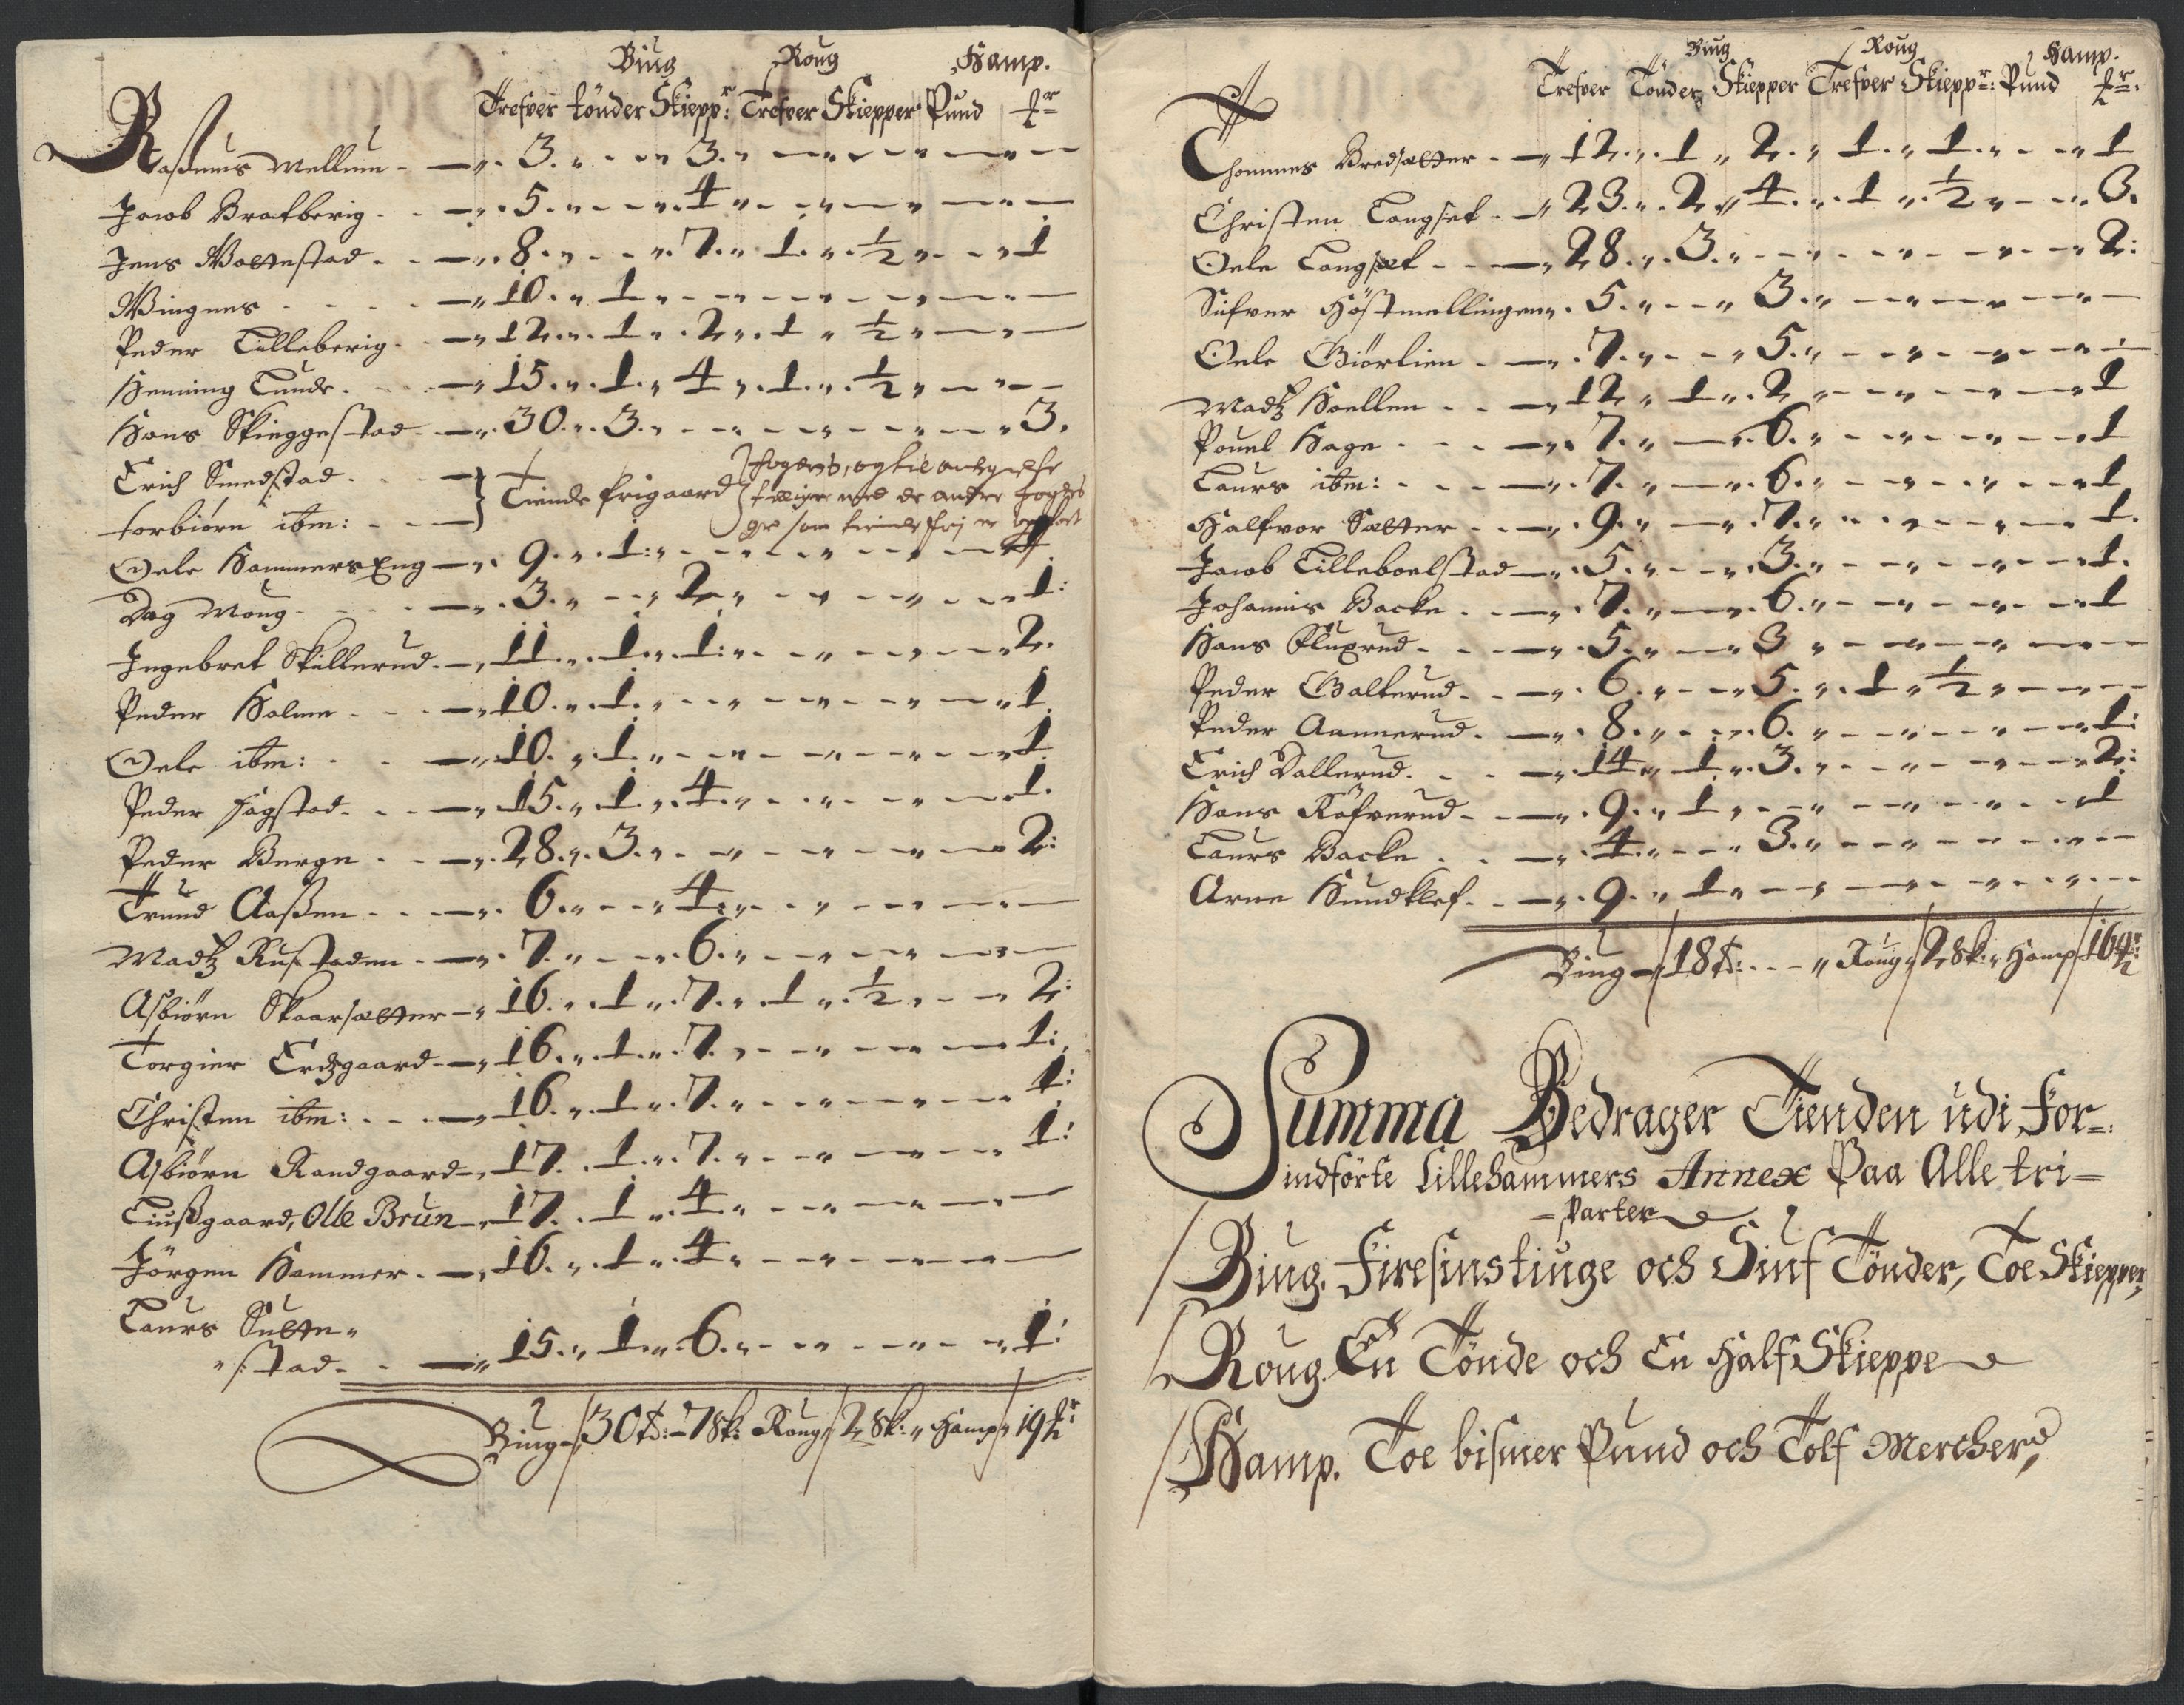 Biug Roug Hamp.
Trefver tönder Skiepp:r Trefver Skiepper Pund
Rasmus Mellum - 3. 3.
Jacob Bratberig - 5. 4
Jens Woltestad - 8. 7. 1. ½ 1
Wingnes - 10. 1
Peder Lilleberig - 12. 1. 2. 1 ½
Henning Lunde - 15. 1. 4. 1. ½
Hans Skieggestad - 30. 3. 3.
Erich Smedstad
torbiörn ibm: } Tiende frigaard
Oele Hammers Eng - 9. 1. 1
Dag Moug - 3. 2. 1:
Ingebret Skillerud - 11. 1. 1. 2.
Peder Holme - 10. 1. 1.
Oele ibm: - 10. 1. 1.
Peder Hagstad - 15. 1. 4. 1.
Peder Berge - 28. 3. 2:
Trund Aaßen - 6. 4.
Madtz Rustaden - 7. 6.
Asbiörn Skaarsætter - 16. 1. 7. 1. ½ 2:
Torgier Erdzgaard - 16. 1. 7. 1:
Christen ibm: - 16. 1. 7. 1:
Asbiörn Randgaard - 17. 1. 7. 1:
Liußgaard, Olle Brun - 17. 1. 4.
Jörgen Hammer - 16. 1. 4.
Laurs Sultte-
stad - 15. 1. 6. 1:
Biug 30 t: 7 sk: Roug 2 sk: Hamp 19
Biug Roug Hamp.
Trefver Tönder Skiepper Trefver Skiepp:r Pund
Thommes Bredsætter - 12. 1. 2. 1. 1. 1
Christen Langset - 23. 2. 4. 1. ½ 3.
Oele Langsæt - 28. 3. 2:
Sifver Höstmellingen. 5. 3.
Oele Giörlien - 7. 5.
Madtz Hoellen - 12. 1. 2. 1
Pouel Hage - 7. 6. 1
Laurs ibm: - 7. 6. 1
Halfvor Sætter - 9. 7. 1.
Jacob Lilleboelstad - 5. 3. 1.
Johannis Backe - 7. 6. 1
Hans Fluxrud - 5. 3
Peder Galterud - 6. 5. 1 ½
Peder Aannerud - 8. 6. 1:
Erich Dallerud - 14. 1. 3. 2:
Hans Röfverud - 9. 1. 1
Laurs Backe - 4. 3.
Arne Hundklef - 9. 1
Biug 18 t: Roug 2 sk: Hamp 16
Summa Bedrager Tienden udi For-
indförte Lillehammers Annex Paa Alle tri-
-Parter
Biug. Firesinstiuge och Siuf Tönder, Toe Skiepper,
Roug. En Tönde och En Half Skieppe
Hamp. Toe bismer Pund och Tolf Mercher,